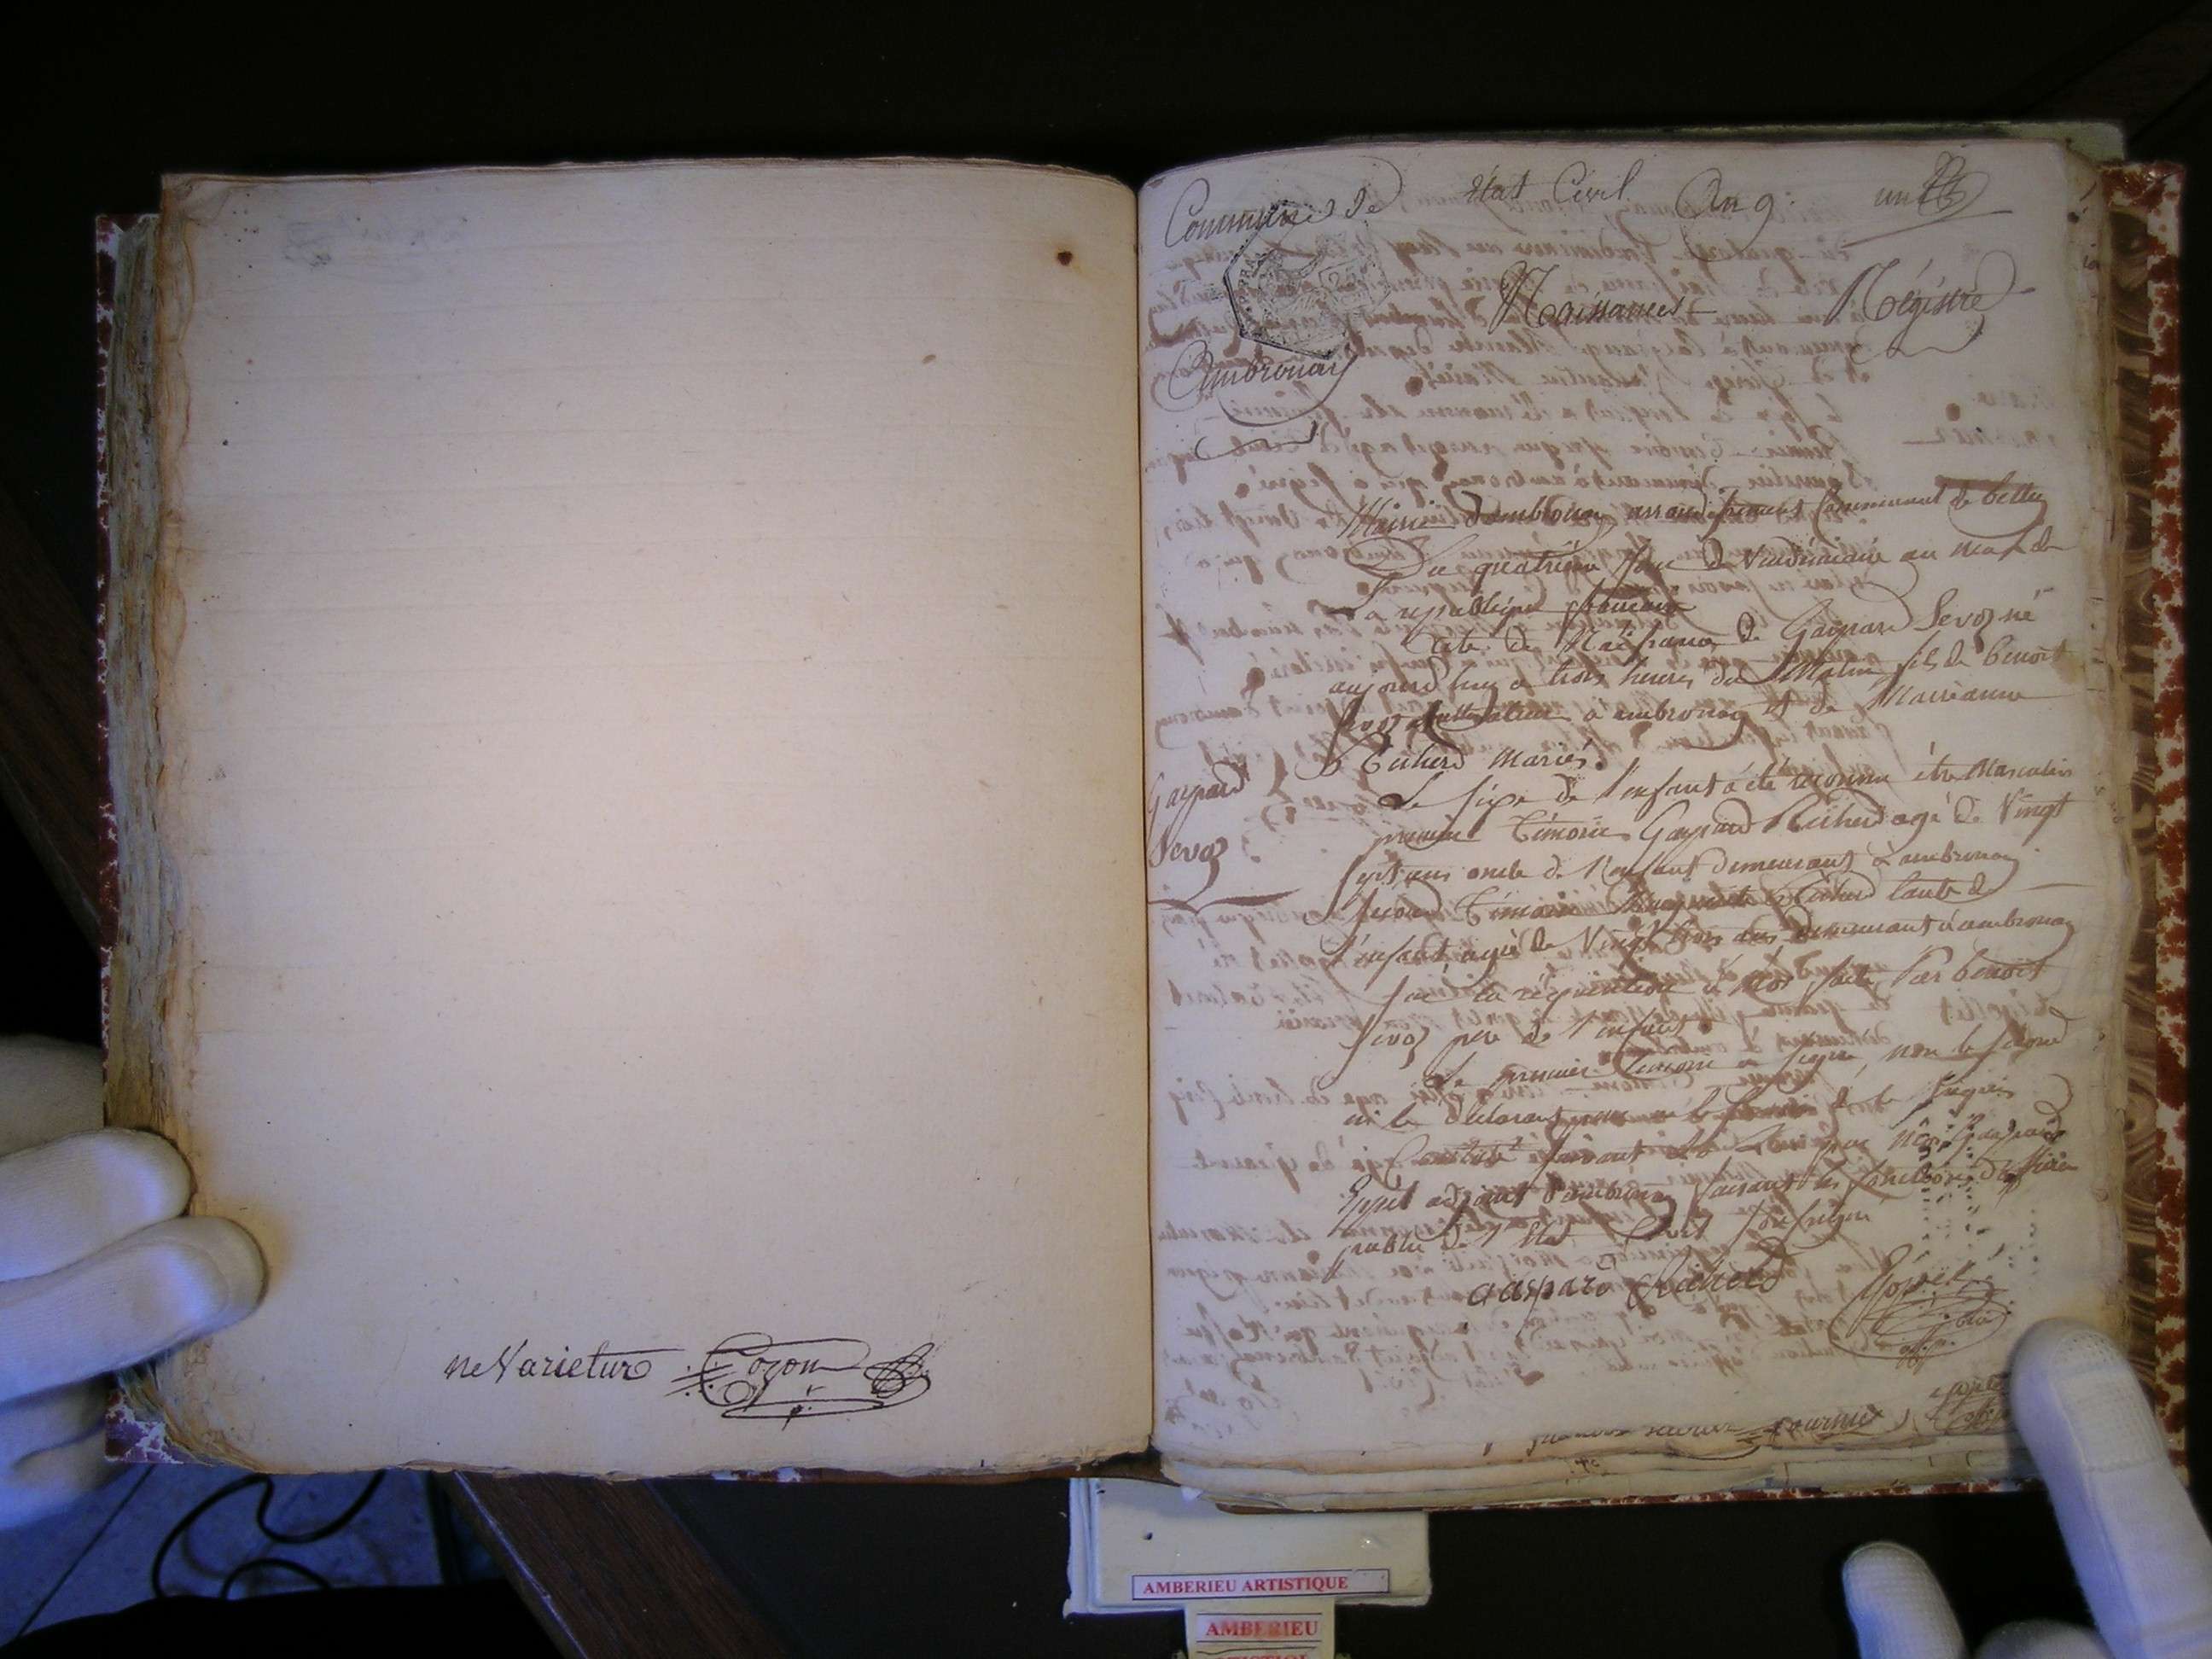 ne Varietur Cozon
Commune de État Civil An 9. un
Naissances Régistre
Ambronay
Mairie d'ambronay arrondissement Communal de belley
Du quatrième jour de Vendémiaire an neuf de
La republique française
Acte de Naissance de Gaspard Sevoz né
aujourd'huy a trois heures du Matin fils de benoit
Sevoz Cultivateur a ambronay et de Marianne
Richerd Mariés.
Gaspard
Sevoz
Le sexe de l'enfant à été reconnu être Masculin
premier Témoin Gaspard Richerd agé de Vingt
sept ans oncle de l'enfant demeurant à ambronay
second Témoin Richerd tante de
l'enfant agée de Vingt trois ans demeurant à ambronay
Sur la réquisition à Moi faite Par benoit
Sevoz pere de l'enfant
Le premier Temoin a signé, non le second
ni le déclarant pour ne le savoir de ce requis
Constaté suivant la Loi par Moi
adjoint d'ambronay faisant les fonctions d'officier
public de l'état Civil soussigné
Gaspard Richerd
AMBERIEU ARTISTIQUE
AMBERIEU